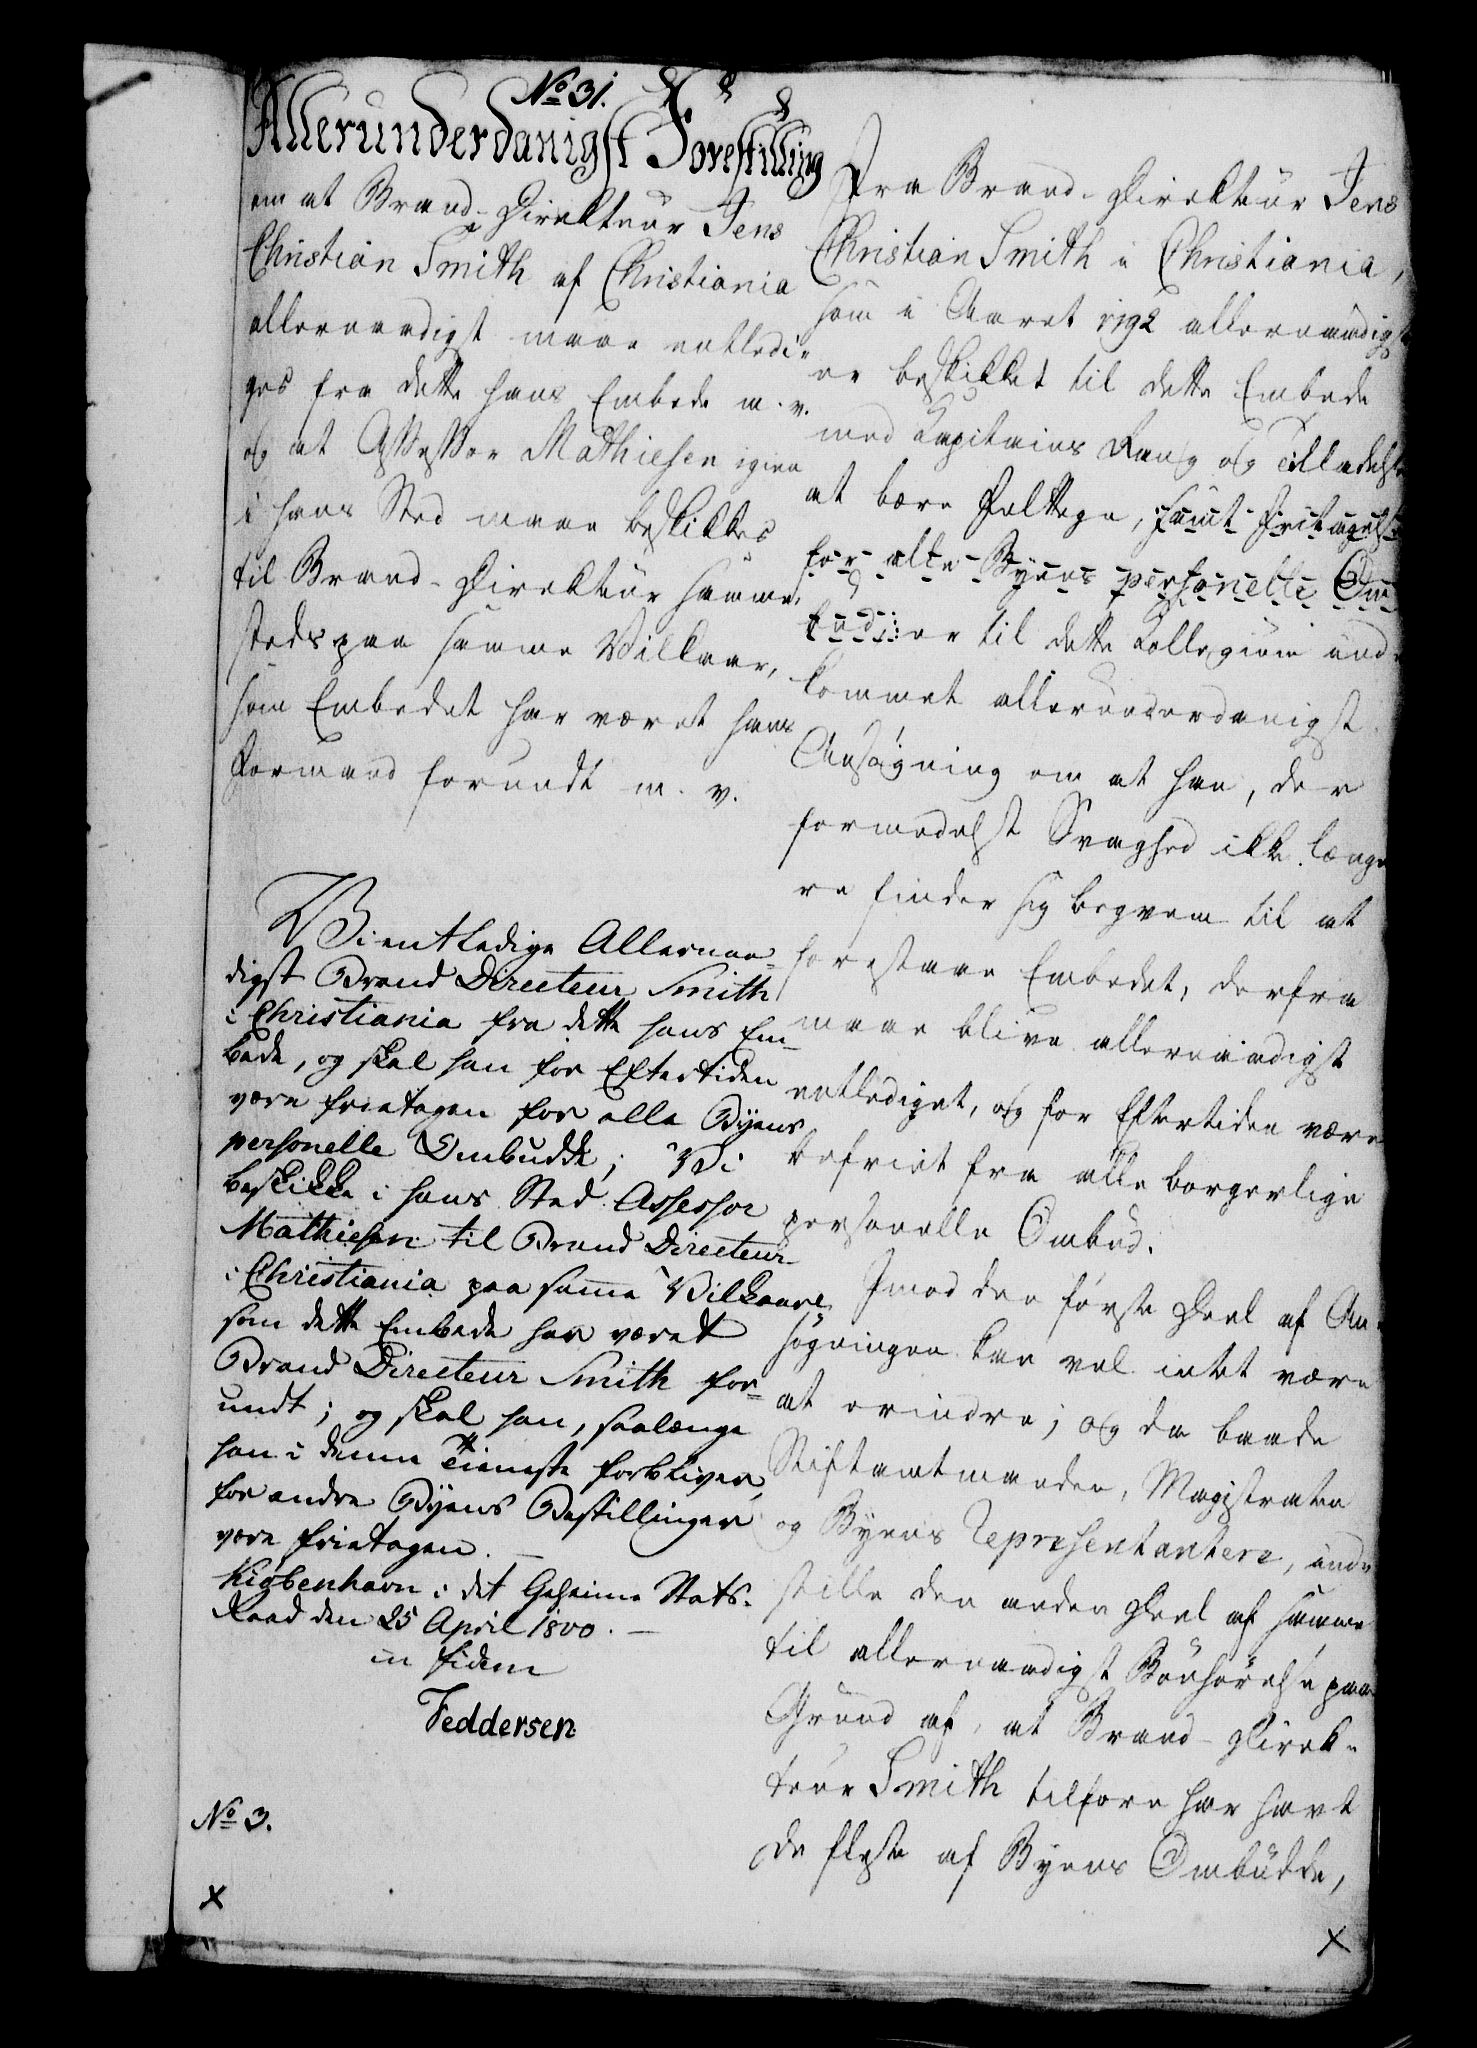 No 31.
Allerunderdanigst Forestilling
om at Brand-Direkteur Jens
Christian Smith af Christiania
allernaadigst maae entledi-
ges fra dette hans Embede m. v.
og at Assessor Mathiesen igien
i hans Sted maae beskikkes
til Brand-Direkteur samme-
steds paa samme Villkaar,
som Embedet har været hans
Formand forundt m. v.
Vi entledige Allernaa-
digst Brand Directeur Smith
i Christiania fra dette hans Em-
bede, og skal han for Eftertiden
være frietagen for alle Byens
personelle Ombudde; Vi
beskikke i hans Sted Assessor
Mathiesen til Brand Directeur
i Christiania paa samme Vilkaare
som dette Embede har været
Brand Directeur Smith for-
undt; og skal han, saalænge
han i denne Tieneste forbliver,
for andre Byens Bestillinger
være frietagen. —
Kiøbenhavn i det Geheime Stats-
Raad den 25 April 1800. —
in fidem
Feddersen
No 3.
x
Fra Brand-Direkteur Jens
Christian Smith i Christiania,
som i Aaret 1792 allernaadigst
er beskikket til dette Embede
med Kapitains Rang og Tilladelse
at bære Felttegn, samt Fritagelse
for alle Byens personelle Om-
bud; er til dette Kollegium ind-
kommet allerunderdanigst
Ansøgning om at han, der
formedelst Svaghed ikke længe
re finder sig beqvem til at
forestaae Embedet, derfra
maae blive allernaadigst
entlediget, og for Eftertiden være
befriet fra alle borgerlige
personelle Ombud.
Imod den første Deel af An-
søgningen kan vel intet være
at erindre; og da baade
Stiftamtmanden, Magistraten
og Byens Repræsentantere, ind-
stille den anden Deel af samme
til allernaadigst Bønhørelse paa
Grund af, at Brand-Direk-
teur Smith tilforn har havt
de fleste af Byens Ombudde,
x